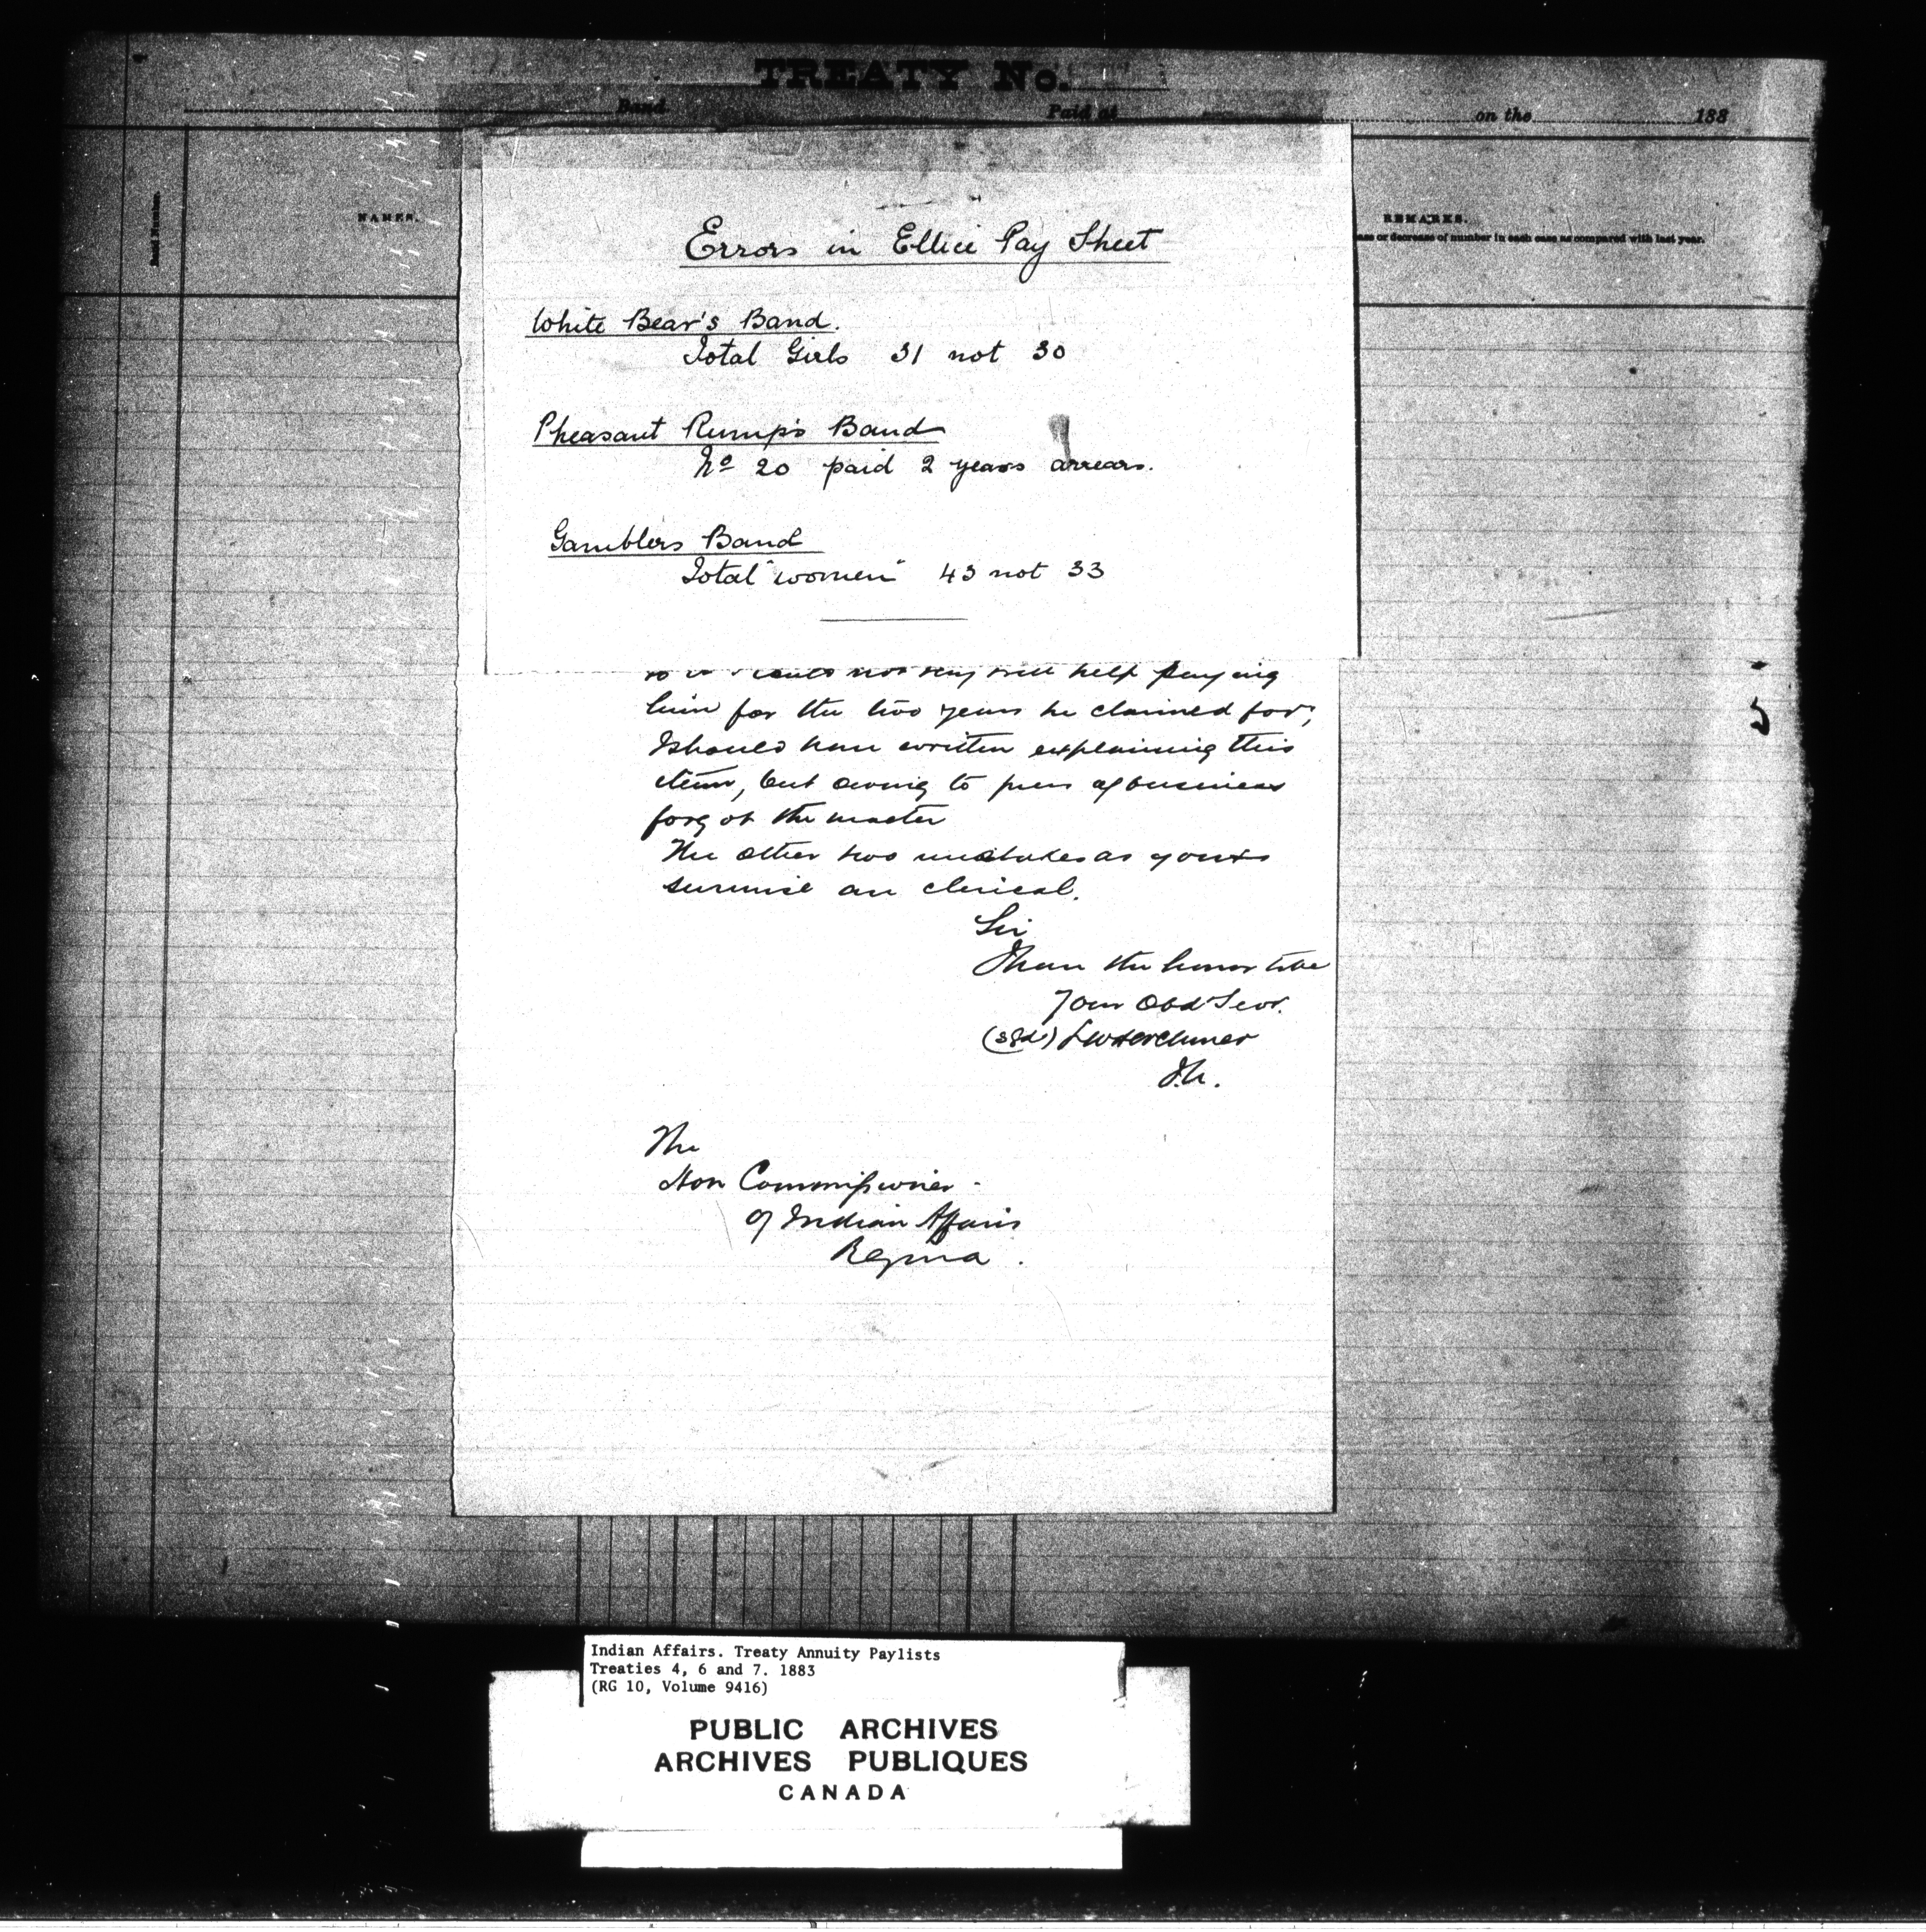 TREATY No.
Band Paid at on the 188
Band Number.
NAMES.
REMARKS.
or decrease of number in each case as compared with last year.
Errors in Ellice Pay Sheet
White Bear's Band.
Total Girls 31 not 30
Pheasant Rump's Band
No 20 paid 2 years arrears.
Gamblers Band
Total "women" 43 not 33
not very well help paying
him for the two years he claimed for,
I should have written explaining this
item, but owing to press of business
forgot the matter
The other two mistakes as you
surmise are clerical.
Sir
I have the honor to be
Your Obdt Servt.
(sgd) L W Herchmer
The
Hon Commissioner
of Indian Affairs
Regina.
Indian Affairs. Treaty Annuity Paylists
Treaties 4, 6 and 7. 1883
(RG 10, Volume 9416)
PUBLIC ARCHIVES
ARCHIVES PUBLIQUES
CANADA